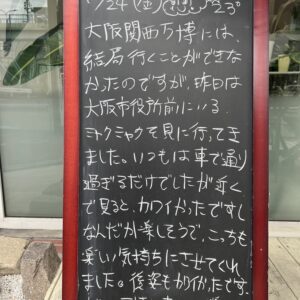 /24(金) 23°
大阪関西万博には
結局行くことができな
かったのですが、昨日は
大阪市役所前にいる
ミャクミャクを見に行ってき
ました。いつもは車で通り
過ぎるだけでしたが近く
で見ると、カワイかったですし
なんだか楽しそうで、こっちも
楽しい気持ちにさせてくれ
ました。後姿もカワイかったです。